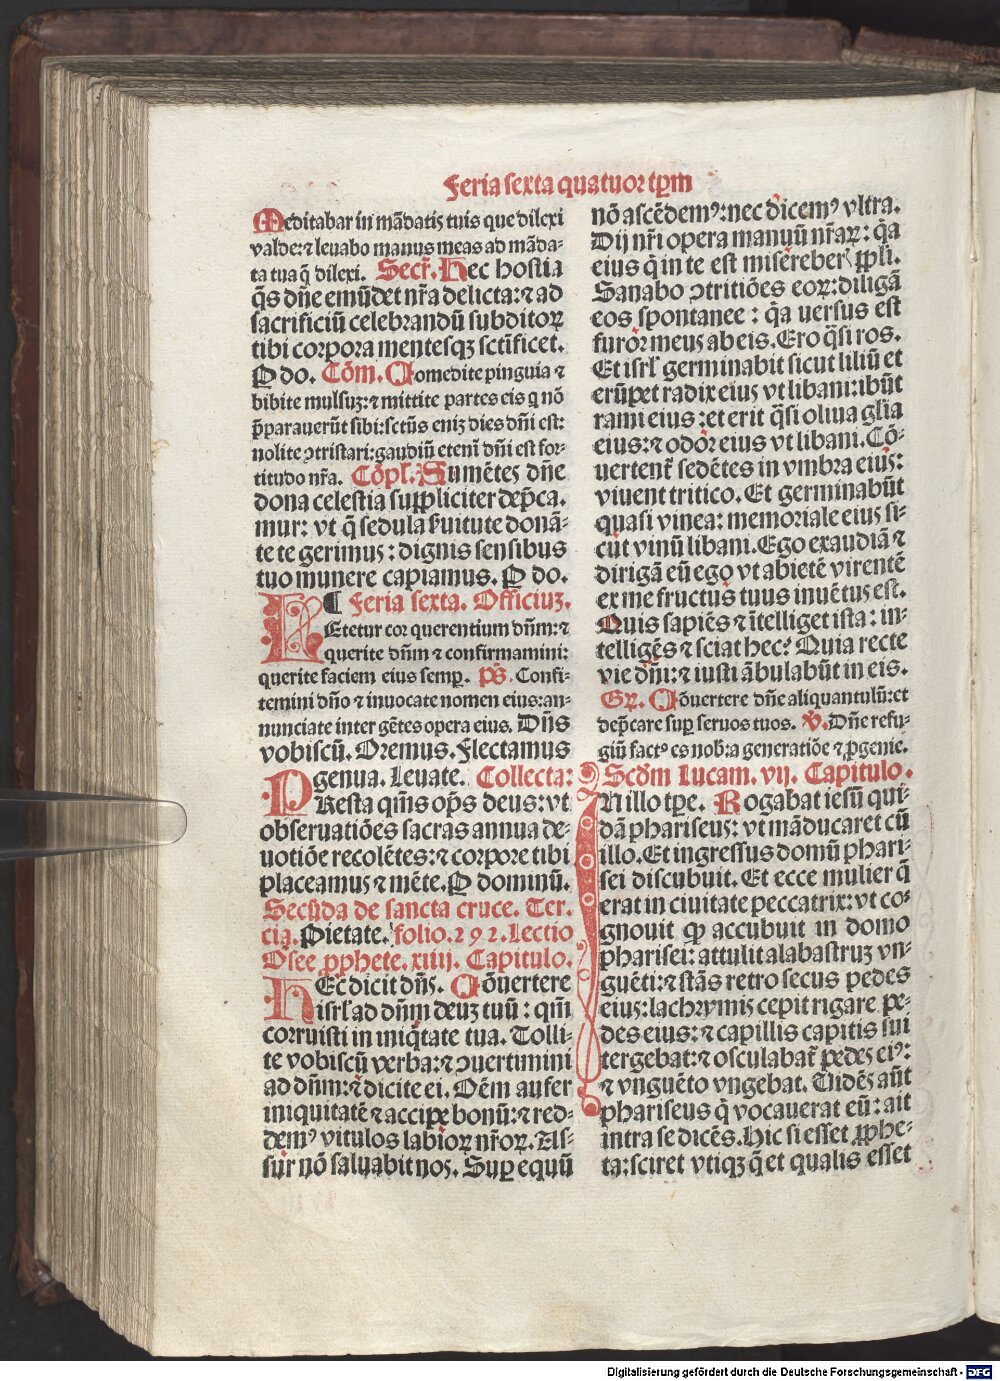 Feria sexta quatuor tꝑm
Meditabar in mādatis tuis que dilexi
valde:⁊ leuabo manus meas ad māda-
ta tua q̄ dilexi. Secr̄. Hec hostia
q̄s dn̄e emūdet nr̄a delicta:⁊ ad
sacrificiū celebrandū subditoꝝ
tibi corpora mentesqꝫ sctīficet.
P do. Cōm. Comedite pinguia ⁊
bibite mulsuꝫ:⁊ mittite partes eis q nō
p̄parauerūt sibi:sctūs eniꝫ dies dn̄i est:
nolite ↄtristari:gaudiū etenī dn̄i est for-
titudo nr̄a. Cōpl. Sumētes dn̄e
dona celestia suppliciter dep̄ca.
mur: vt q̄ sedula ẜuitute donā-
te te gerimus: dignis sensibus
tuo munere capiamus. P do.
Feria sexta. Officiuꝫ.
LEtetur cor querentium dn̄m:⁊
querite dn̄m ⁊ confirmamini:
querite faciem eius semꝑ. ps̄. Confi-
temini dn̄o ⁊ inuocate nomen eius:an-
nunciate inter gētes opera eius. Dn̄s
vobiscū. Oremus. Flectamus
genua. Leuate. Collecta:
PResta qm̄s op̄s deus:vt
obseruatiōes sacras annua de-
uotiōe recolētes:⁊ corpore tibi
placeamus ⁊ mēte. P dominū.
Secūda de sancta cruce. Ter.
cia. Pietate. folio.292. Lectio
Osee ꝓphete. xiiij. Capitulo.
HEc dicit dn̄s. Cōuertere
isrl̄ ad dn̄m deuꝫ tuū: qm̄
corruisti in iniq̄tate tua. Tolli-
te vobiscū verba:⁊ ↄuertimini
ad dn̄m:⁊ dicite ei. Oēm aufer
iniquitatē ⁊ accipe bonū:⁊ red-
demꝰ vitulos labioꝝ nr̄oꝝ. As-
sur nō saluabit nos. Suꝑ equū
nō ascēdemꝰ:nec dicemꝰ vltra.
Dij nr̄i opera manuū nr̄aꝝ: q̄a
eius q̄ in te est misereberꝭ ppli.
Sanabo ↄtritiōes eoꝝ:diligā
eos spontanee: q̄a uersus est
furor meus ab eis. Ero q̄si ros.
Et isrl̄ germinabit sicut liliū et
erūpet radix eius vt libani:ibūt
rami eius:et erit q̄si oliua glīa
eius:⁊ odor eius vt libani. Cō-
uertent̄ sedētes in vmbra eius:
viuent tritico. Et germinabūt
quasi vinea: memoriale eius si-
cut vinū libani. Ego exaudiā ⁊
dirigā eū ego vt abietē virentē
ex me fructus tuus inuētus est.
Quis sapiēs ⁊ ītelliget ista: in-
telligēs ⁊ sciat hec? Quia recte
vie dn̄i:⁊ iusti ābulabūt in eis.
Gr̄. Cōuertere dn̄e aliquantulū:et
dep̄care suꝑ seruos tuos. V̄. Dn̄e refu-
giū factꝰ es nob̄:a generatiōe ⁊ ꝓgenie.
Scd̄m Lucam. vij. Capitulo.
IN illo tꝑe. Rogabat iesū qui-
dā phariseus: vt māducaret cū
illo. Et ingressus domū phari-
sei discubuit. Et ecce mulier q̄
erat in ciuitate peccatrix:vt co-
gnouit qp accubuit in domo
pharisei: attulit alabastruꝫ vn-
guēti:⁊ stās retro secus pedes
eius:lachrymis cepit rigare pe-
des eius:⁊ capillis capitis sui
tergebat:⁊ osculabat̄ pedes eiꝰ:
⁊ vnguēto vngebat. Uidēs aūt
phariseus q̄ vocauerat eū: ait
intra se dicēs. Hic si esset ꝓphe-
ta:sciret vtiqꝫ q̄ et qualis esset
Digitalisierung gefördert durch die Deutsche Forschungsgemeinschaft - DFG